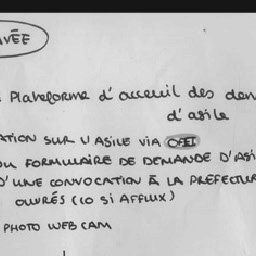 IVÉE
Plateforme d'acceuil des den
d'asile
ATION SUR L'ASILE VIA OFII
OU FORMULAIRE DE DEMANDE D'ASI
D'UNE CONVOCATION À LA PREFECTUR
OUVRÉS (10 SI AFFLUX)
PHOTO WEB CAM